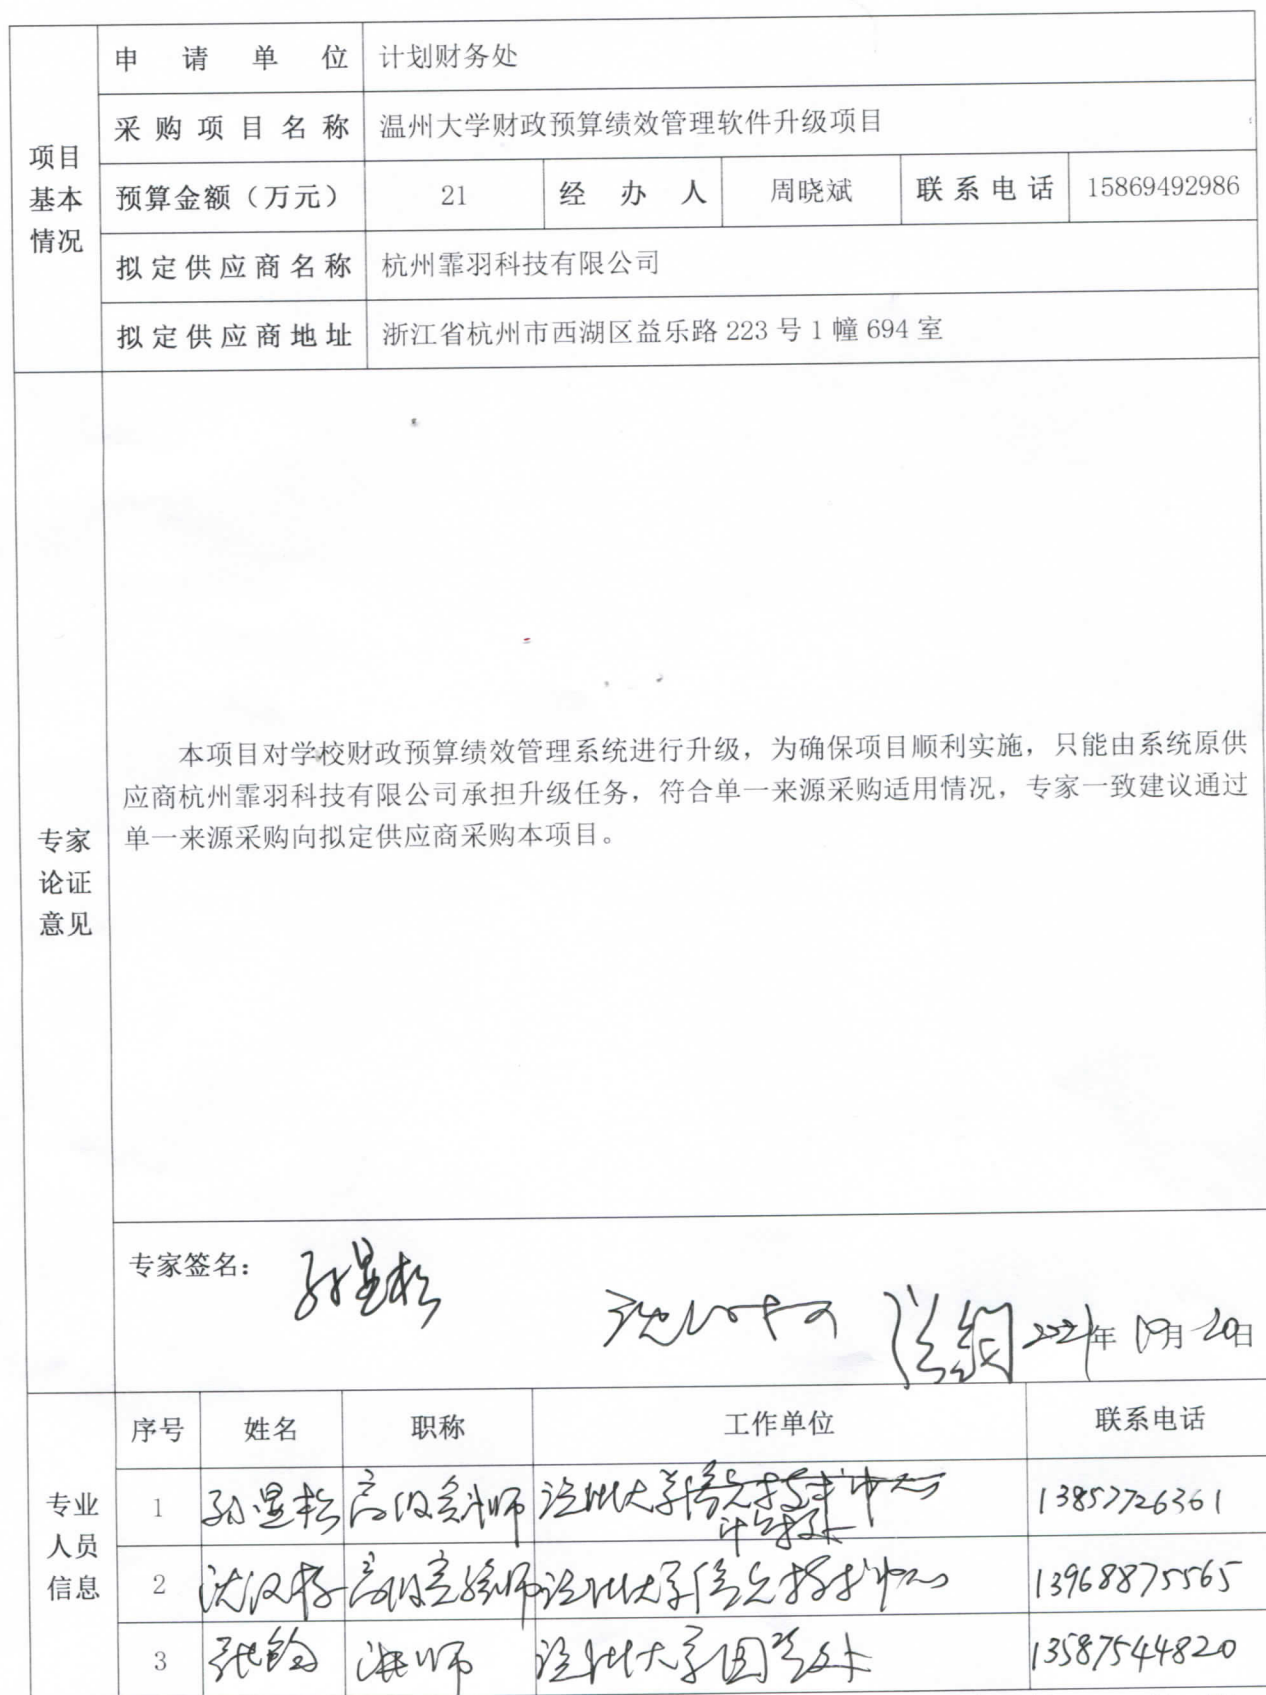 申请单位 计划财务处
采购项目名称 温州大学财政预算绩效管理软件升级项目
项目基本情况
预算金额（万元） 21 经办人 周晓斌 联系电话 15869492986
拟定供应商名称 杭州霏羽科技有限公司
拟定供应商地址 浙江省杭州市西湖区益乐路 223 号 1 幢 694 室
本项目对学校财政预算绩效管理系统进行升级，为确保项目顺利实施，只能由系统原供
应商杭州霏羽科技有限公司承担升级任务，符合单一来源采购适用情况，专家一致建议通过
单一来源采购向拟定供应商采购本项目。
专家
论证
意见
专家签名：
2021年10月20日
序号 姓名 职称 工作单位 联系电话
专业
人员
信息
1 高级会计师 温州大学 13857726361
2 高级实验师 温州大学信息技术中心 13968875565
3 讲师 温州大学国资处 13587544820